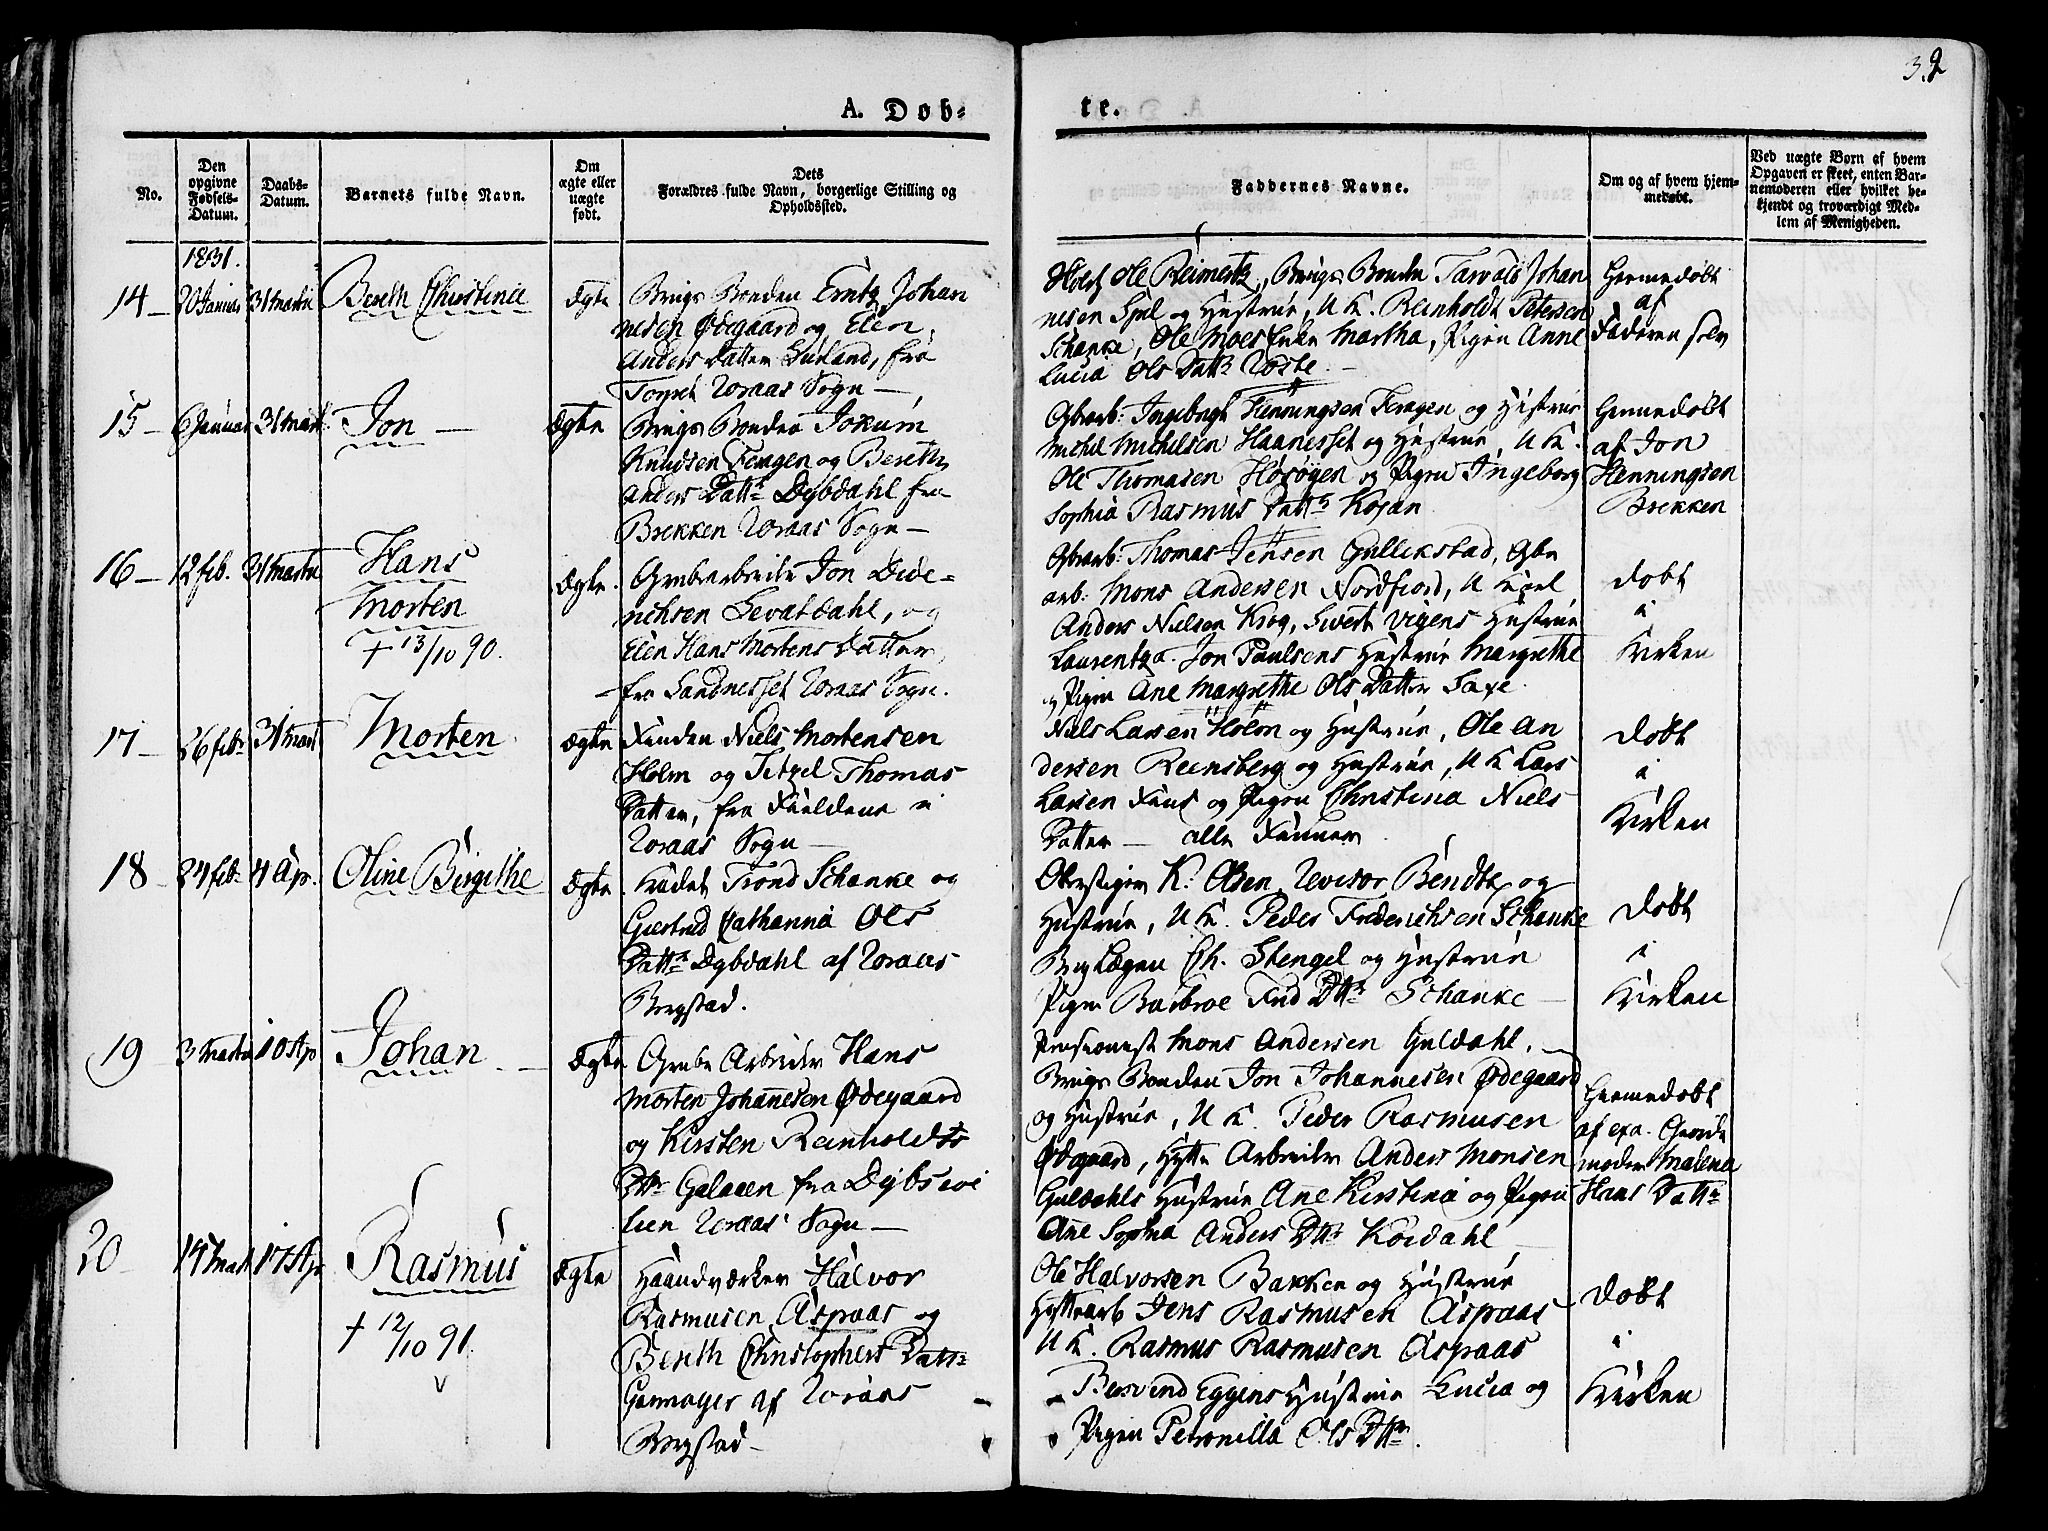 32
A. Døb-
te.
No.
Den opgivne Fødsels-Datum.
Daabs-Datum.
Barnets fulde Navn.
Om ægte eller uægte født.
Dets Forældres fulde Navn, borgerlige Stilling og Opholdssted.
Faddernes Navne.
Om og af hvem hjemmedøbt.
Ved uægte Børn af hvem Opgaven er skeet, enten Barnemoderen eller hvilket bekjendt og troværdigt Medlem af Menigheden.
1831.
14 — 20 Januar 31 Martii Bereth Christina ægte
Brugs Bonden Erntz Johan
nesen Ødegaard og Elen
Anders Datter Galand, fra
Tomset Røraas Sogn —
Holtz Ole Reimertz, Brugs Bonden Tarvald Johan
nesen Spel og Hustrue, U K. Reinholdt Petersen
Schanke, Ole Moes Enke Martha, Pigen Anne
Lucia Ols Dattr Røste. —
Hiemmedøbt
af
Faderen selv
15 — 6 Januar 31 Mart Jon — Ægte
Brugs Bonden Jokum
Knudsen Feragen og Bereth
Anders Dattr Dybdahl fra
Brekken Røraas Sogn —
Gbrarb: Ingebrigt Henningsen Feragen og Hustrue
Michel Michelsen Haanesset og Hustrue, U K.
Ole Thomasen Horøgen og Pigen Ingeborg
Sophia Rasmus Dattr Kojan
Hiemmedøbt
af Jon
Henningsen
Brekken
16 — 12 feb. 31 Martii Hans
Morten
+ 13/10 90.
Ægte.
Grubearbeider Jon Dide-
richsen Sevatdahl, og
Elen Hans Mortens Datter,
fra Sandnesset Røraas Sogn.
Gbrarb: Thomas Jensen Gullikstad, Gbr
arb: Mons Andersen Nordfiord, U Karl
Anders Nielsen Krog, Sivert Vigens Hustrue
Laurentza. Jon Paulsens Hustrue Margrethe
og Pigen Ane Margrethe Ols Datter Saxe.
døbt
i
Kirken
17 — 26 febr 31 Mart Morten Ægte
Finden Niels Mortensen
Holm og Titzel Thomas
Datter, fra Fieldene i
Røraas Sogn —
Niels Larsen Holm og Hustrue, Ole An
dersen Reensberg og Hustrue, U K Lars
Larsen Find og Pigen Christina Niels
Datter — alle Finner
døbt
i
Kirken
18 — 24 feb 4 Ap. Oline Birgithe Ægte
Kadet Trond Schanke og
Giertrud Catharina Ols
Dattr Dybdahl af Røraas
Bergstad.
Oberstiger K. Olsen, Revisor Bendtz og
Hustrue, U K. Peder Frederichsen Schanke
Berglægen Ch. Stengel og Hustrue
Pigen Barbroe Frid Dttr Schanke —
døbt
i
Kirken
19 3 Martii 10 Ap Johan — Ægte
Grube Arbeider Hans
Morten Johannesen Ødegaard
og Kirsten Reinholdts
Dttr Galaaen fra Dybsøe
lien Røraas Sogn —
Pensionist Mons Andersen Guldahl,
Brugs Bonden Jon Johannesen Ødegaard
og Hustrue, U K. Peder Rasmusen
Ødegaard, Hytte Arbeider Anders Monsen
Guldahls Hustrue Ane Kirstina og Pigen
Ane Sophia Anders Dttr Kordahl —
Hiemmedøbt
af exa. Giorde
moder Malena
Hans Dattr
20 — 14 Mart 17 Ap Rasmus
+ 12/10 91.
v
Ægte
Haandværker Halvor
Rasmusen Aspaas og
Bereth Christophers Dattr
Germager af Røraas
Bergstad —
Ole Halvorsen Bakken og Hustrue
Hyttearb Jens Rasmusen Aspaas
U K. Rasmus Rasmusen Aspaas
Bersvend Eggens Hustrue Lucia og
Pigen Petronilla Ols Dttr.
døbt
i
Kirken